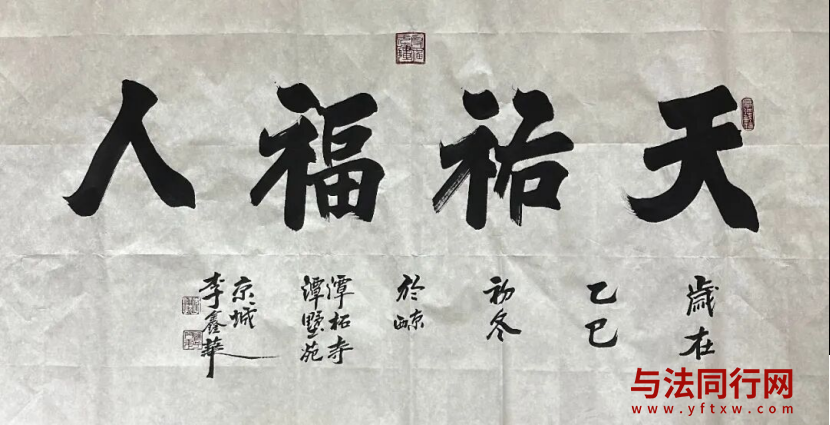 天祐福人
歲在
乙巳
初冬
於
潭柘寺
潭墅苑
京城
李鑫華
与法同行网
www.yftxw.com